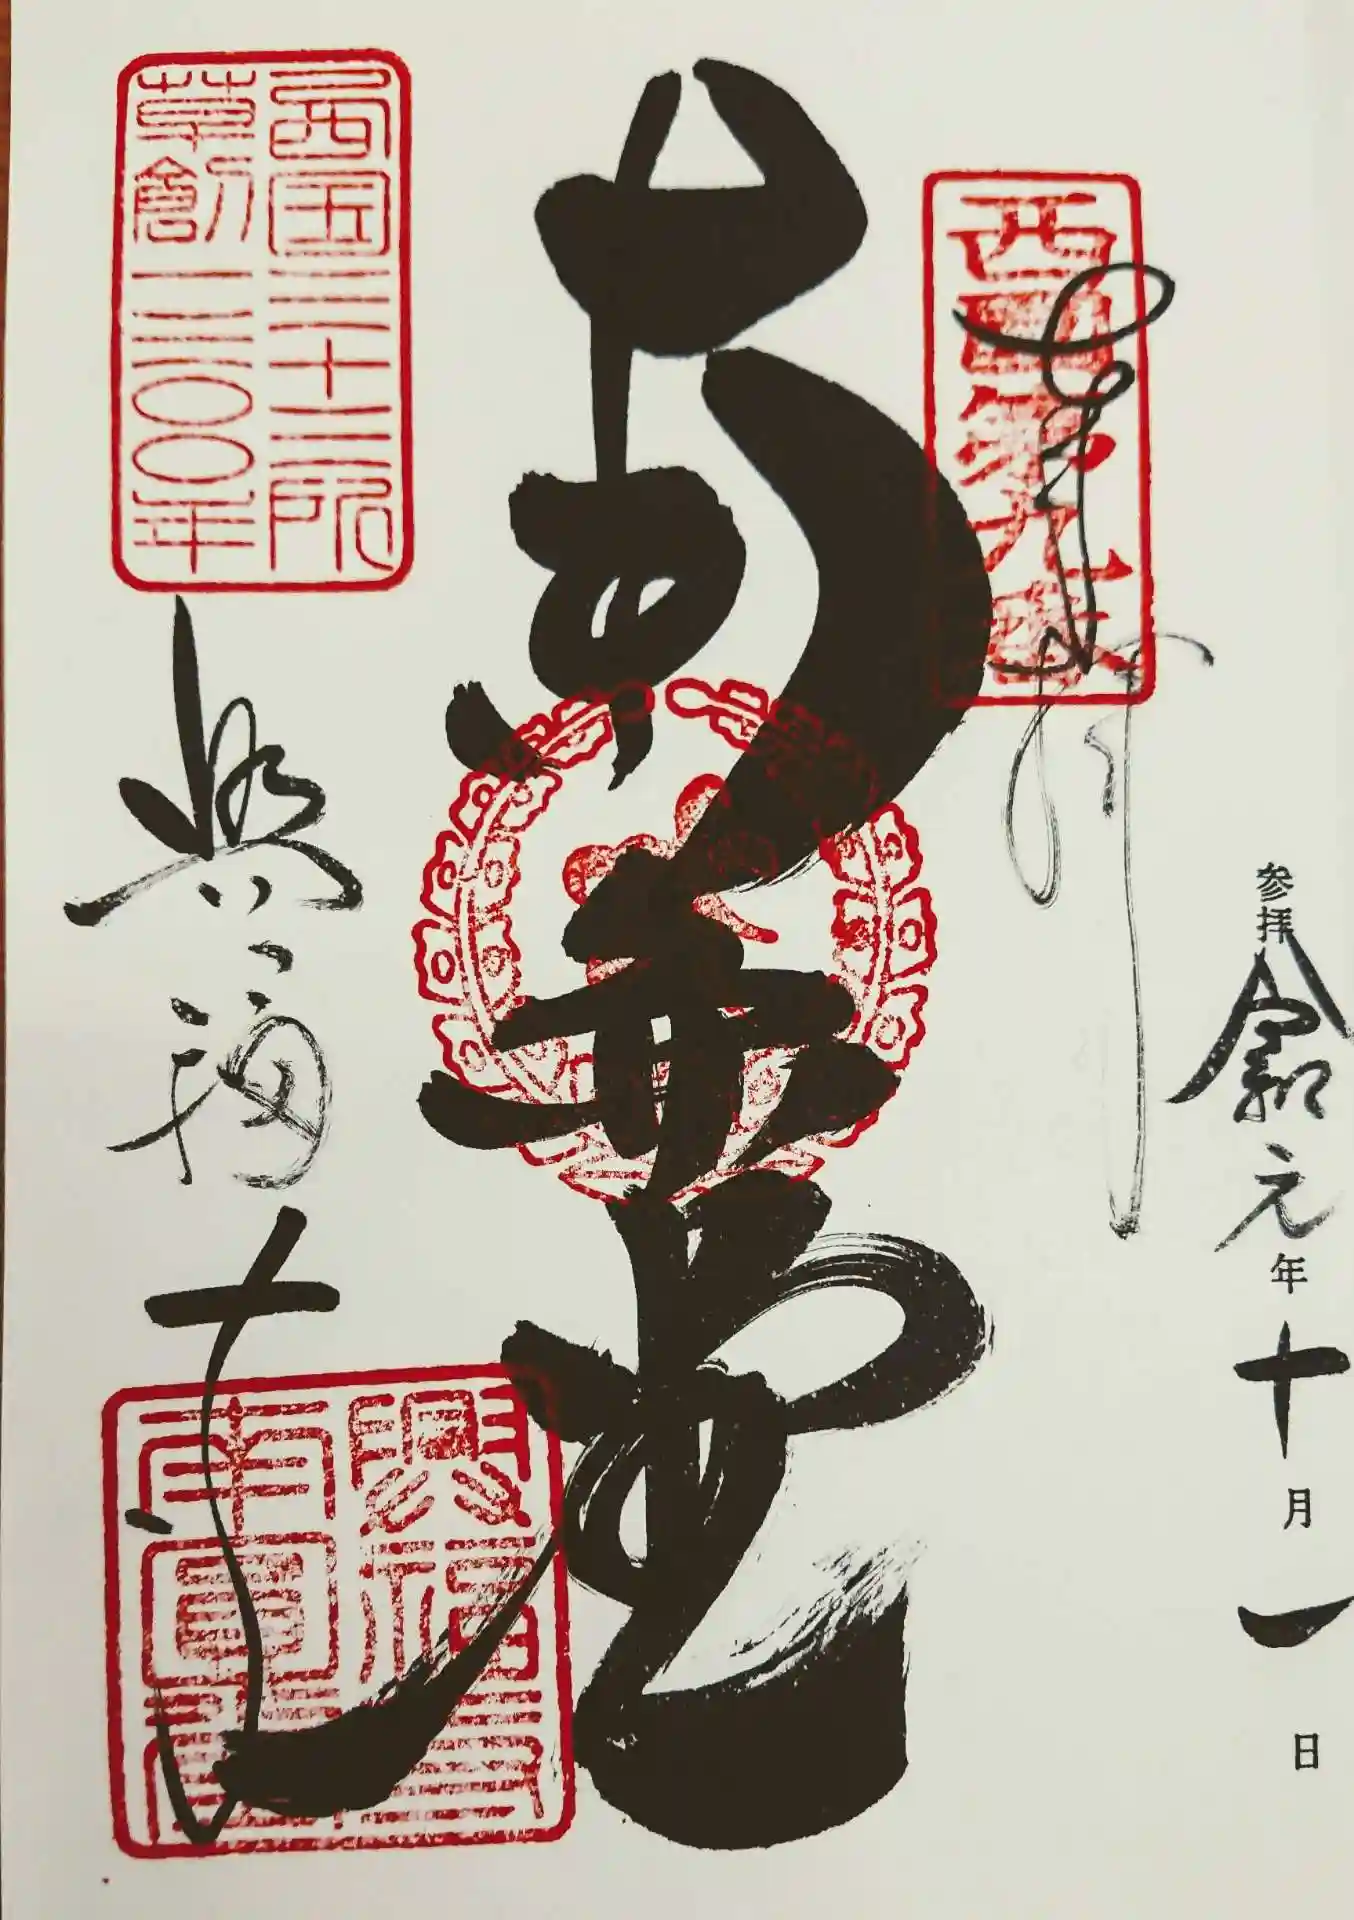 奉拝
西国第九番
参拝 令和元年十月一日
南円堂
西国三十三所
草創一三〇〇年
興福寺
興福寺
南円堂